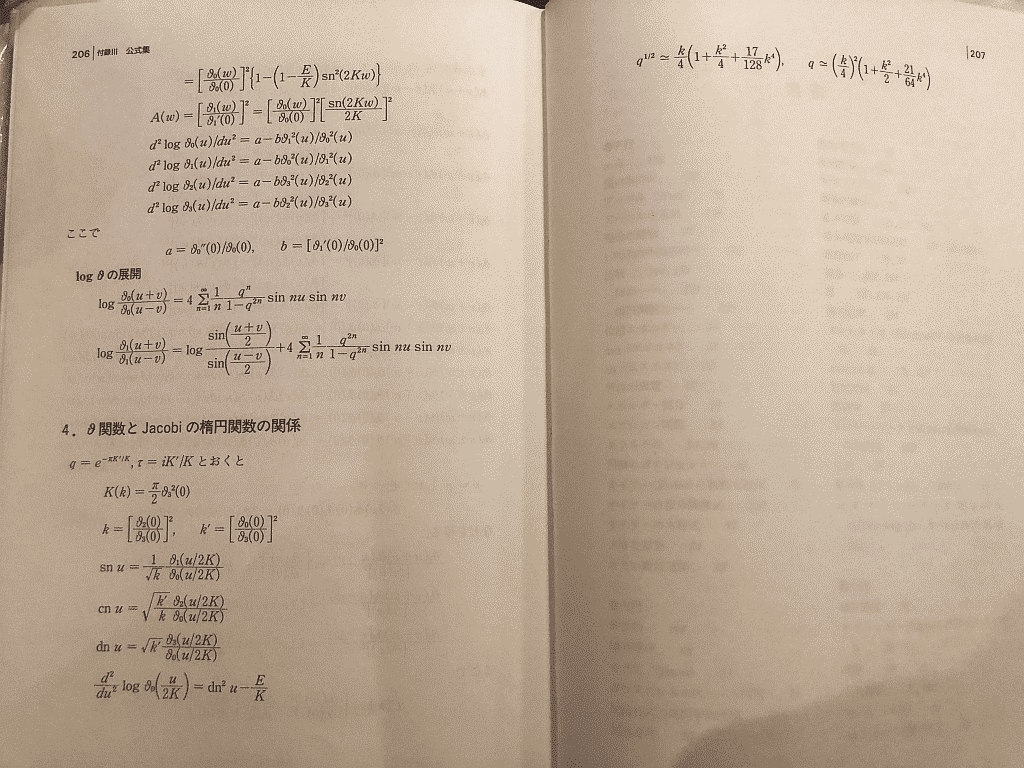 206 | 付録III 公式集
= [ϑ₀(w)/ϑ₀(0)]²{1−(1−E/K) sn²(2Kw)}
A(w) = [ϑ₁(w)/ϑ₁′(0)]² = [ϑ₀(w)/ϑ₀(0)]²[sn(2Kw)/2K]²
d² log ϑ₀(u)/du² = a−bϑ₁²(u)/ϑ₀²(u)
d² log ϑ₁(u)/du² = a−bϑ₀²(u)/ϑ₁²(u)
d² log ϑ₂(u)/du² = a−bϑ₃²(u)/ϑ₂²(u)
d² log ϑ₃(u)/du² = a−bϑ₂²(u)/ϑ₃²(u)
ここで
a = ϑ₀″(0)/ϑ₀(0), b = [ϑ₁′(0)/ϑ₀(0)]²
log ϑ の展開
log ϑ₀(u+v)/ϑ₀(u−v) = 4 ∑_{n=1}^{∞} 1/n q^n/(1−q^{2n}) sin nu sin nv
log ϑ₁(u+v)/ϑ₁(u−v) = log sin((u+v)/2)/sin((u−v)/2) +4 ∑_{n=1}^{∞} 1/n q^{2n}/(1−q^{2n}) sin nu sin nv
4. ϑ 関数と Jacobi の楕円関数の関係
q = e^{−πK′/K}, τ = iK′/K とおくと
K(k) = π/2 ϑ₃²(0)
k = [ϑ₂(0)/ϑ₃(0)]², k′ = [ϑ₀(0)/ϑ₃(0)]²
sn u = 1/√k ϑ₁(u/2K)/ϑ₀(u/2K)
cn u = √(k′/k) ϑ₂(u/2K)/ϑ₀(u/2K)
dn u = √k′ ϑ₃(u/2K)/ϑ₀(u/2K)
d²/du² log ϑ₀(u/2K) = dn² u − E/K
| 207
q^{1/2} ≃ k/4(1+k²/4+17/128 k⁴), q ≃ (k/4)²(1+k²/2+21/64 k⁴)